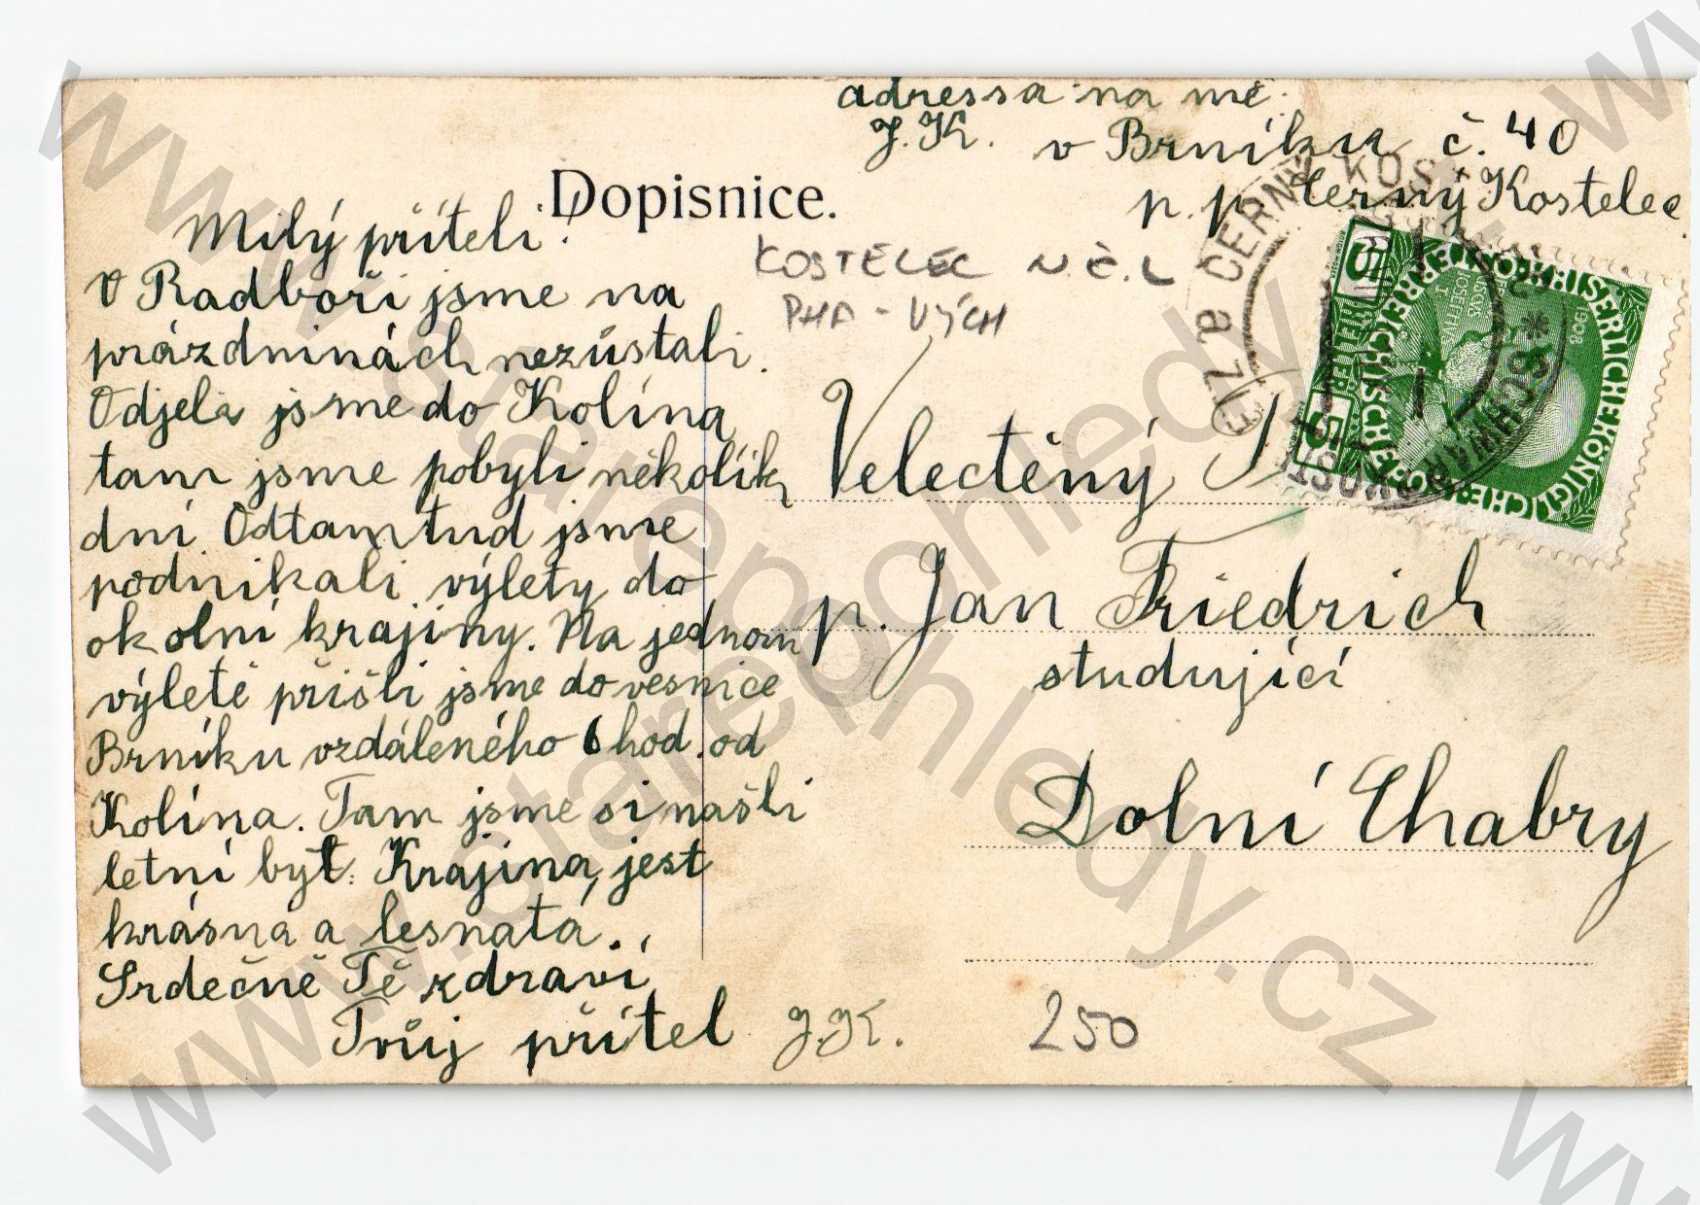 adressa na mě:
J. K. v Brníku č. 40
p. p. Černý Kostelec
Dopisnice.
Milý příteli!
V Radboři jsme na
prázdninách nezůstali.
Odjeli jsme do Kolína
tam jsme pobyli několik
dní. Odtamtud jsme
podnikali výlety do
okolní krajiny. Na jednom
výletě přišli jsme do vesnice
Brníku vzdáleného 6 hod. od
Kolína. Tam jsme si našli
letní byt. Krajina jest
krásna a lesnatá.
Srdečně Tě zdraví
Tvůj přítel J.K.
KOSTELEC N. Č. L
PHA - VÝCH
Velectěný
p. Jan Friedrich
studující
Dolní Chabry
250
1908
5 HELLER 5
www.starepohledy.cz
www.starepohledy.cz